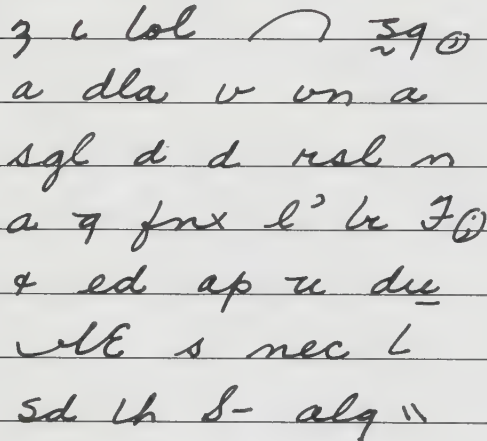 z c lol ⌒ sq ⊙
a dla v vn a
sgl d d rsl n
a q fnx l' br 7 ⊙
& ed ap u du
s nec l
sd ch S- alg "